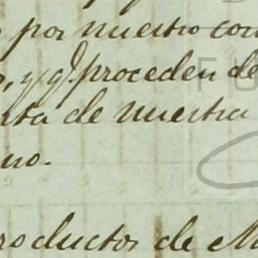 por nuestro con
, y q.e proceden de
nta de nuestra
no.
roductos de M